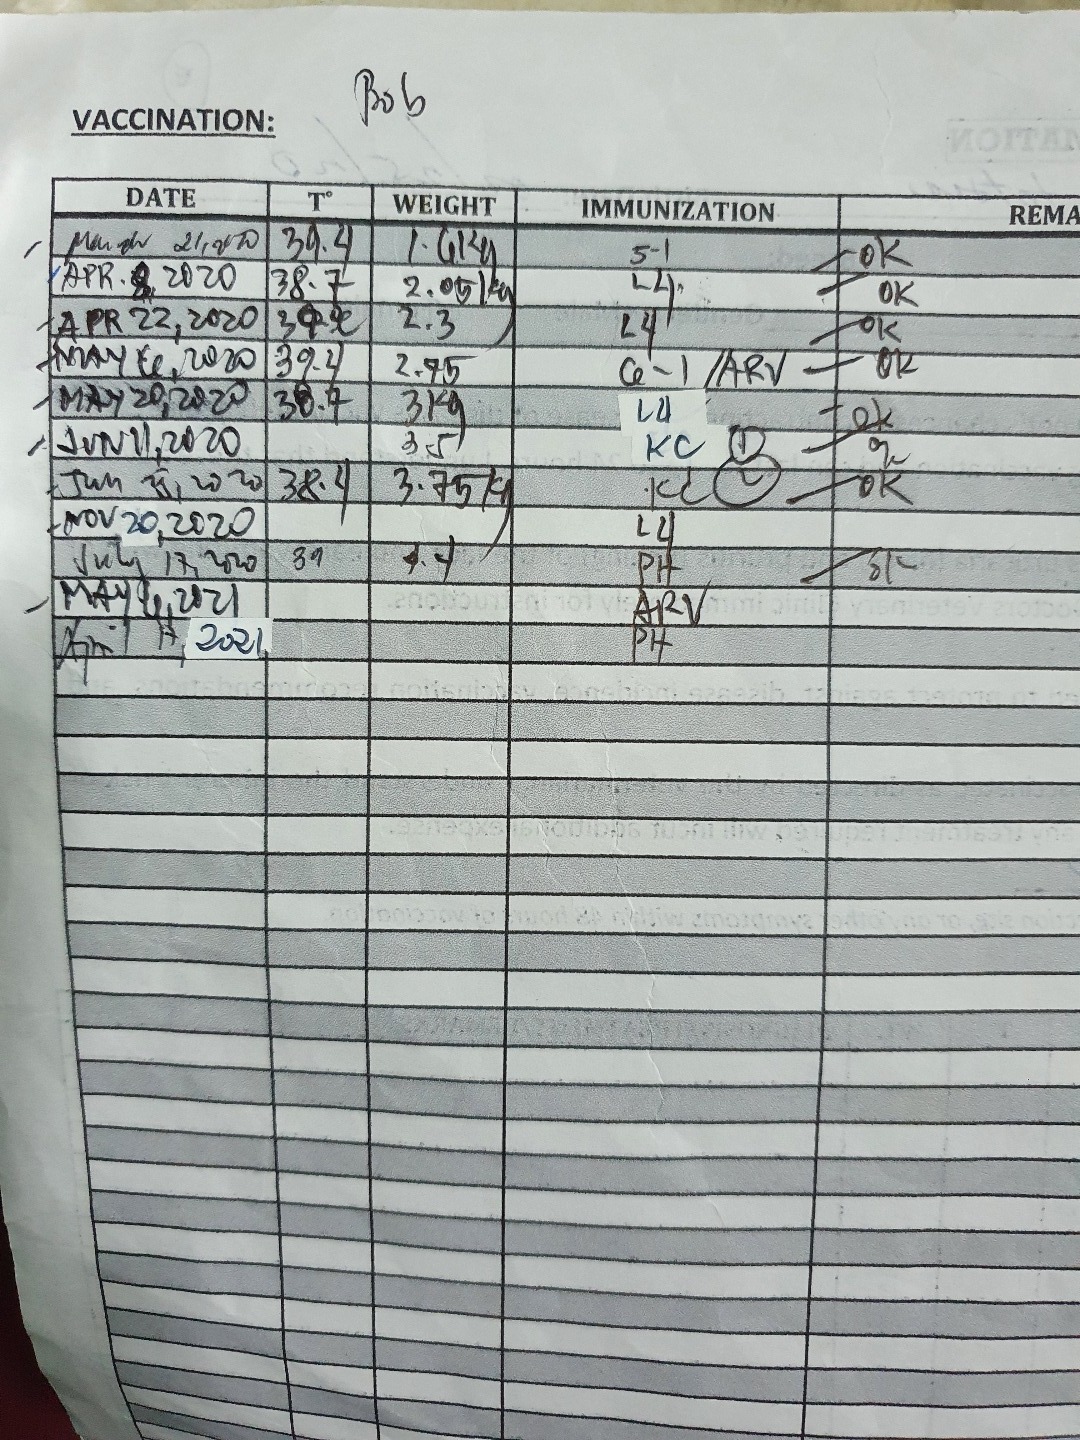 Bob
VACCINATION:
DATE T° WEIGHT IMMUNIZATION REMA
March 21, 2020 39.4 1.6Kg 5-1 OK
APR. 8, 2020 38.7 2.05kg L4 OK
APR 22, 2020 2.3 L4 OK
MAY 6, 2020 39.4 2.95 6-1 /ARV OK
MAY 20, 2020 38.7 3Kg L4 ok
JUN 11, 2020 3.5 KC 1
Jun 2020 38.4 3.75 kg KC 2 OK
NOV 20, 2020 L4
July 17, 2020 39 4.4 PH
MAY 6, 2021 ARV
April 17 2021 PH